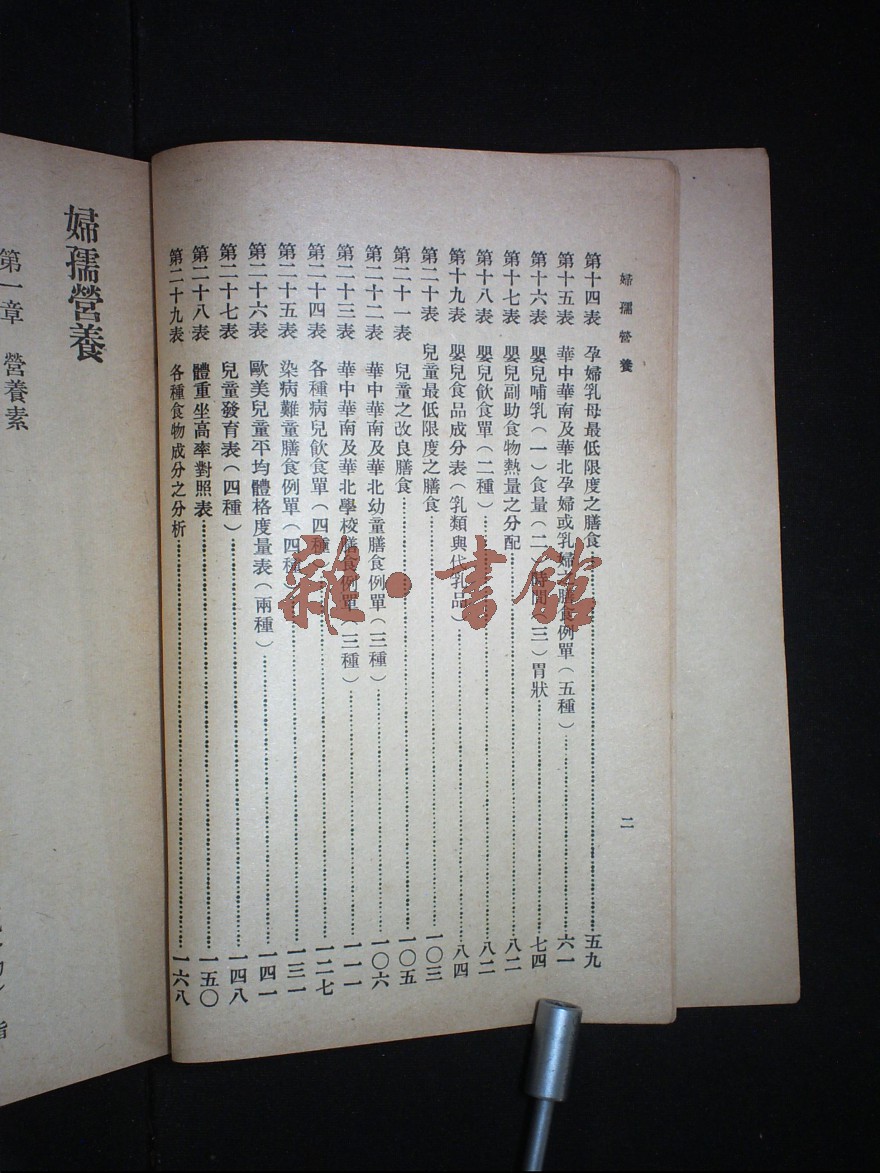 婦孺營養
二
第十四表 孕婦乳母最低限度之膳食……五九
第十五表 華中華南及華北孕婦或乳婦之膳食例單(五種)……六一
第十六表 嬰兒哺乳(一)食量(二)時間(三)胃狀……七四
第十七表 嬰兒副助食物熱量之分配……八二
第十八表 嬰兒飲食單(二種)……八二
第十九表 嬰兒食品成分表(乳類與代乳品)……八四
第二十表 兒童最低限度之膳食……一〇三
第二十一表 兒童之改良膳食……一〇五
第二十二表 華中華南及華北幼童膳食例單(三種)……一〇六
第二十三表 華中華南及華北學校膳食例單(三種)……一一一
第二十四表 各種病兒飲食單(四種)……一二七
第二十五表 染病難童膳食例單(四種)……一三一
第二十六表 歐美兒童平均體格度量表(兩種)……一四一
第二十七表 兒童發育表(四種)……一四八
第二十八表 體重坐高率對照表……一五〇
第二十九表 各種食物成分之分析……一六八
婦孺營養
第一章 營養素
雜·書館